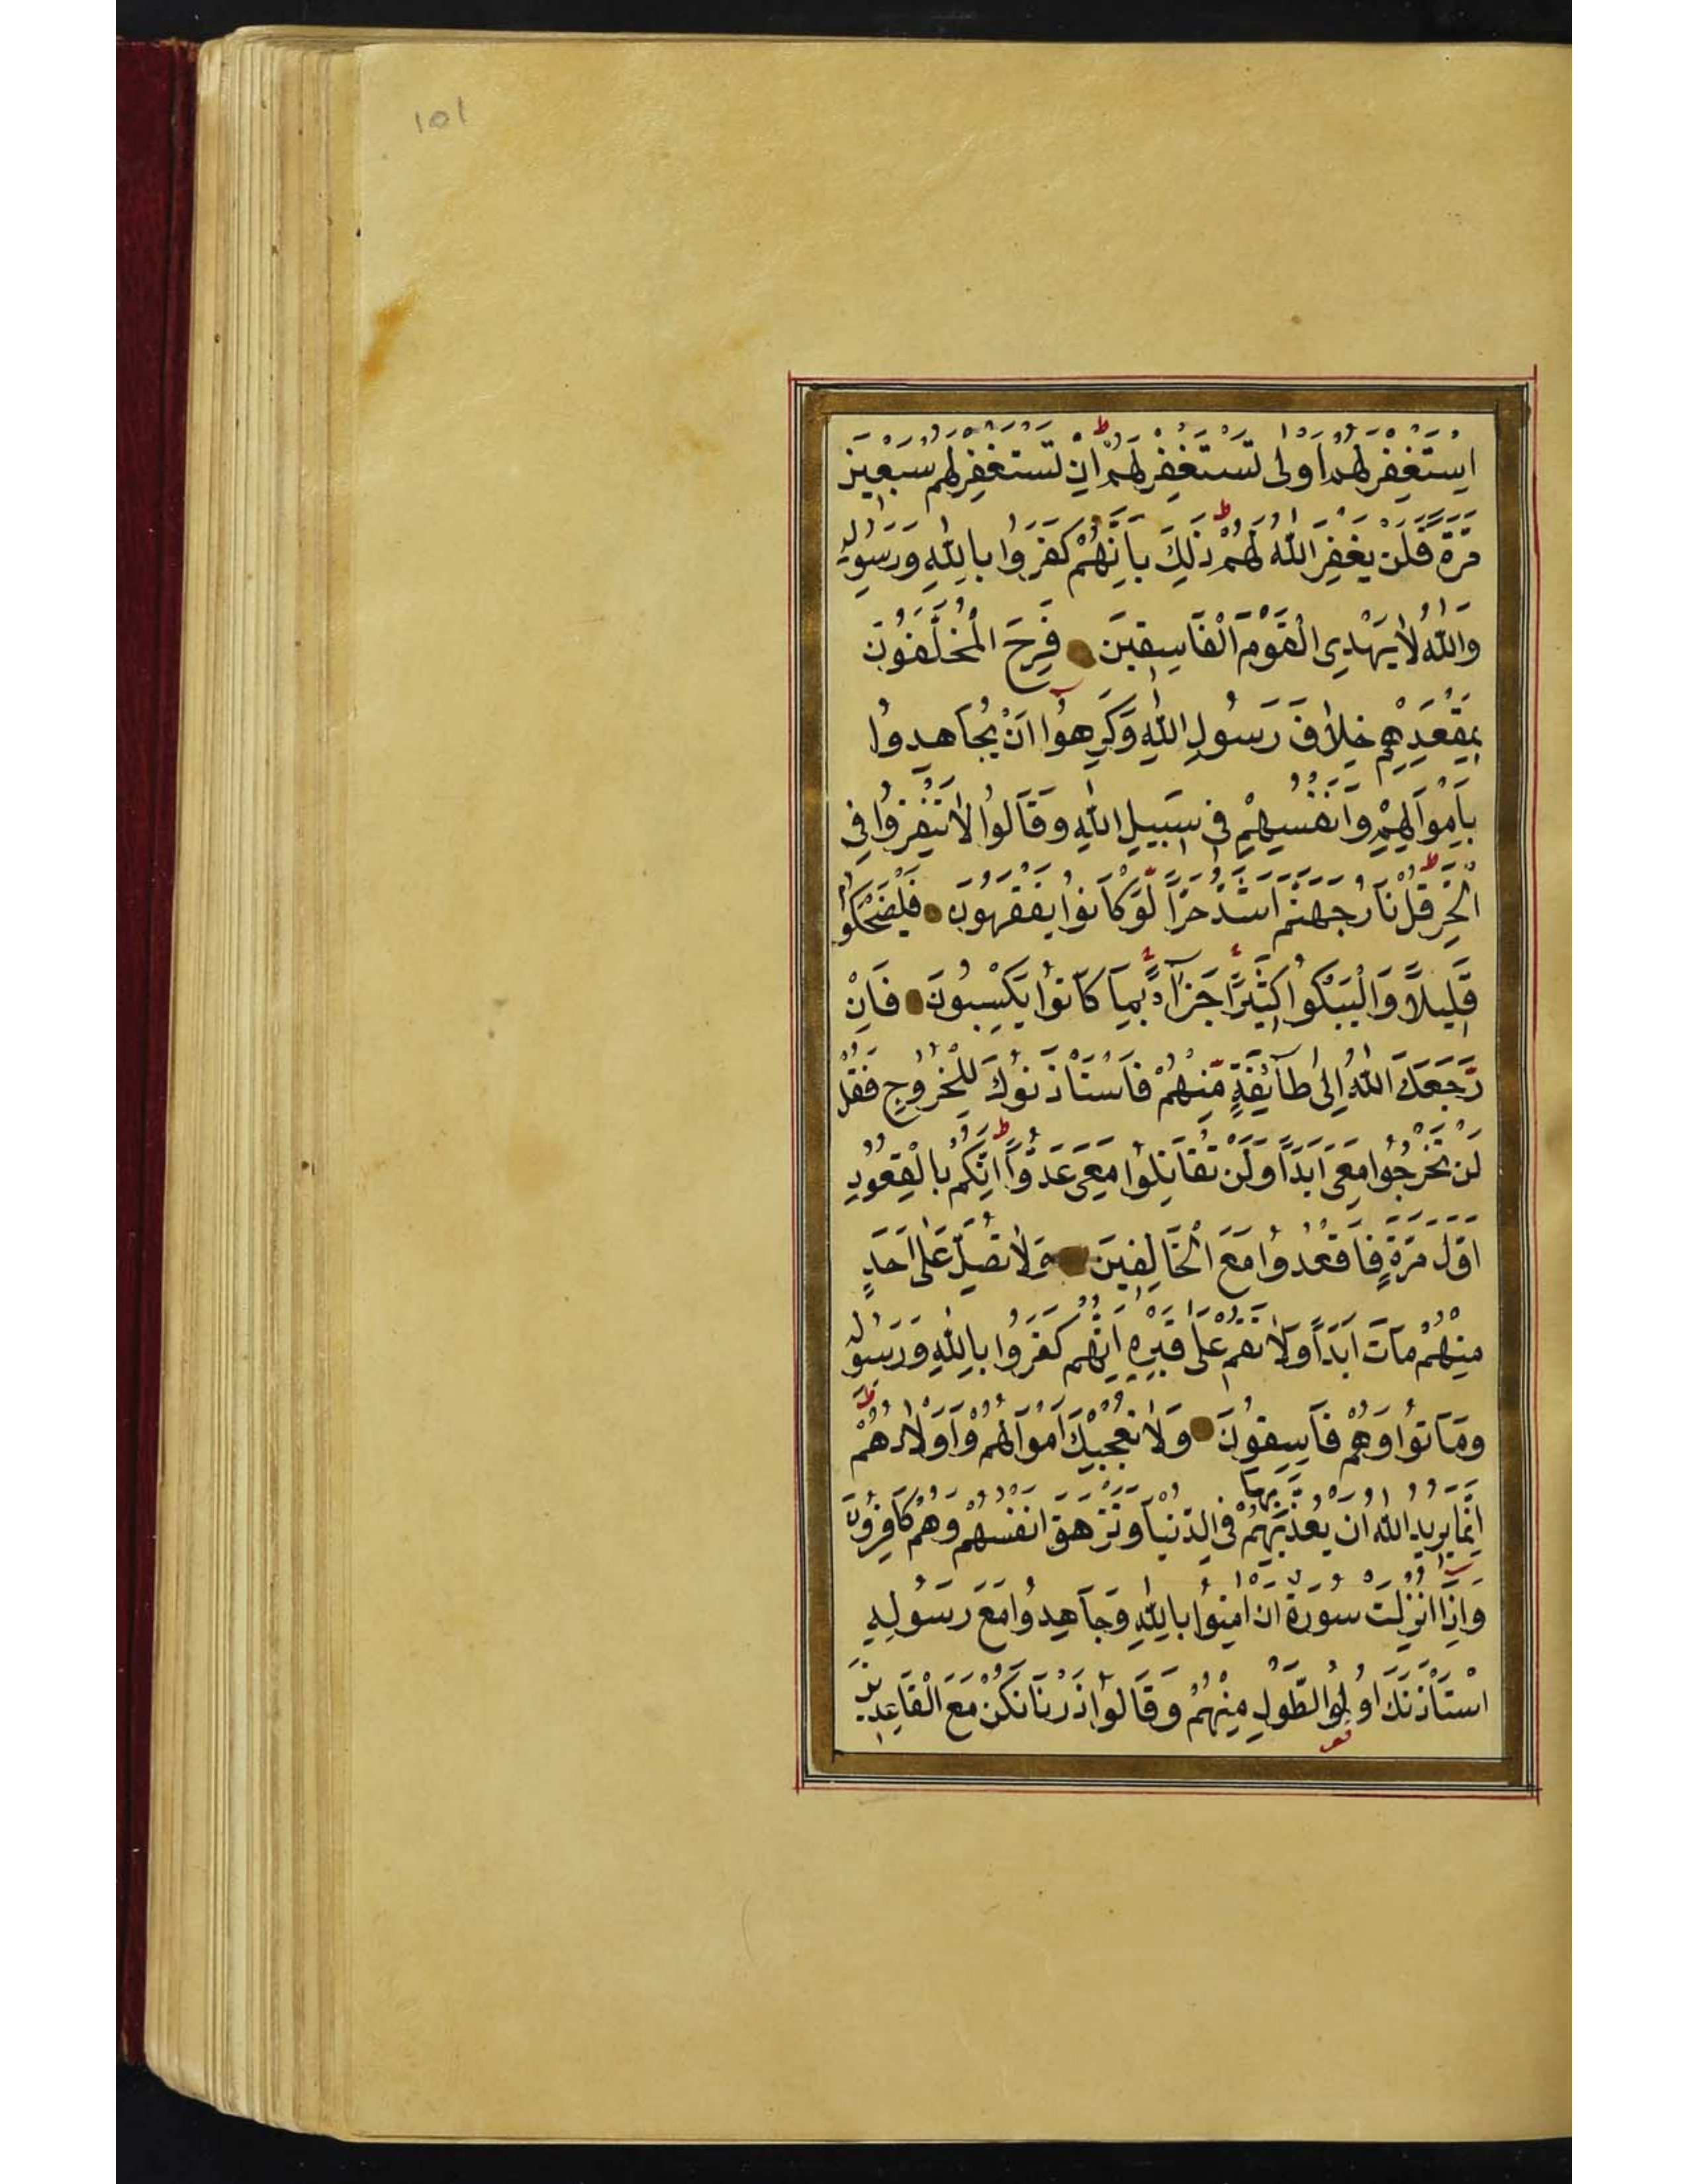 ١٥١
اِسْتَغْفِرْ لَهُمْ اَوْ لٰا تَسْتَغْفِرْ لَهُمْ ط اِنْ تَسْتَغْفِرْ لَهُمْ سَبْعِينَ
مَرَّةً فَلَنْ يَغْفِرَ اللّٰهُ لَهُمْ ط ذٰلِكَ بِاَنَّهُمْ كَفَرُوا بِاللّٰهِ وَرَسُولِهِ
وَاللّٰهُ لٰا يَهْدِى الْقَوْمَ الْفَاسِقِينَ فَرِحَ الْمُخَلَّفُونَ
بِمَقْعَدِهِمْ خِلٰافَ رَسُولِ اللّٰهِ وَكَرِهُوا اَنْ يُجَاهِدُوا
بِاَمْوَالِهِمْ وَاَنْفُسِهِمْ فِى سَبِيلِ اللّٰهِ وَقَالُوا لٰا تَنْفِرُوا فِى
الْحَرِّ ط قُلْ نَارُ جَهَنَّمَ اَشَدُّ حَرًّا لَوْ كَانُوا يَفْقَهُونَ فَلْيَضْحَكُوا
قَلِيلًا وَالْيَبْكُوا كَثِيرًا جَزَآءً بِمَا كَانُوا يَكْسِبُونَ فَاِنْ
رَجَعَكَ اللّٰهُ اِلٰى طَآئِفَةٍ مِنْهُمْ فَاسْتَاْذَنُوكَ لِلْخُرُوجِ فَقُلْ
لَنْ تَخْرُجُوا مَعِىَ اَبَدًا وَلَنْ تُقَاتِلُوا مَعِىَ عَدُوًّا ط اِنَّكُمْ بِالْقُعُودِ
اَوَّلَ مَرَّةٍ فَاقْعُدُوا مَعَ الْخَالِفِينَ وَلٰا تُصَلِّ عَلٰى اَحَدٍ
مِنْهُمْ مَاتَ اَبَدًا وَلٰا تَقُمْ عَلٰى قَبْرِهِ اِنَّهُمْ كَفَرُوا بِاللّٰهِ وَرَسُولِهِ
وَمَاتُوا وَهُمْ فَاسِقُونَ وَلٰا تُعْجِبْكَ اَمْوَالُهُمْ وَاَوْلٰادُهُمْ ط
اِنَّمَا يُرِيدُ اللّٰهُ اَنْ يُعَذِّبَهُمْ بِهَا فِى الدُّنْيَا وَتَزْهَقَ اَنْفُسُهُمْ وَهُمْ كَافِرُونَ
وَاِذَآ اُنْزِلَتْ سُورَةٌ اَنْ اٰمِنُوا بِاللّٰهِ وَجَاهِدُوا مَعَ رَسُولِهِ
اسْتَاْذَنَكَ اُولُوا الطَّوْلِ مِنْهُمْ وَقَالُوا ذَرْنَا نَكُنْ مَعَ الْقَاعِدِينَ